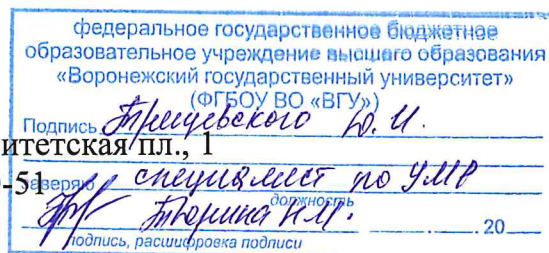 федеральное государственное бюджетное
образовательное учреждение высшего образования
«Воронежский государственный университет»
(ФГБОУ ВО «ВГУ»)
Подпись Трещевского Ю.И.
итетская пл., 1
-51
заверяю специалист по УМР
должность
Зюрина Н.М. . . 20
подпись, расшифровка подписи